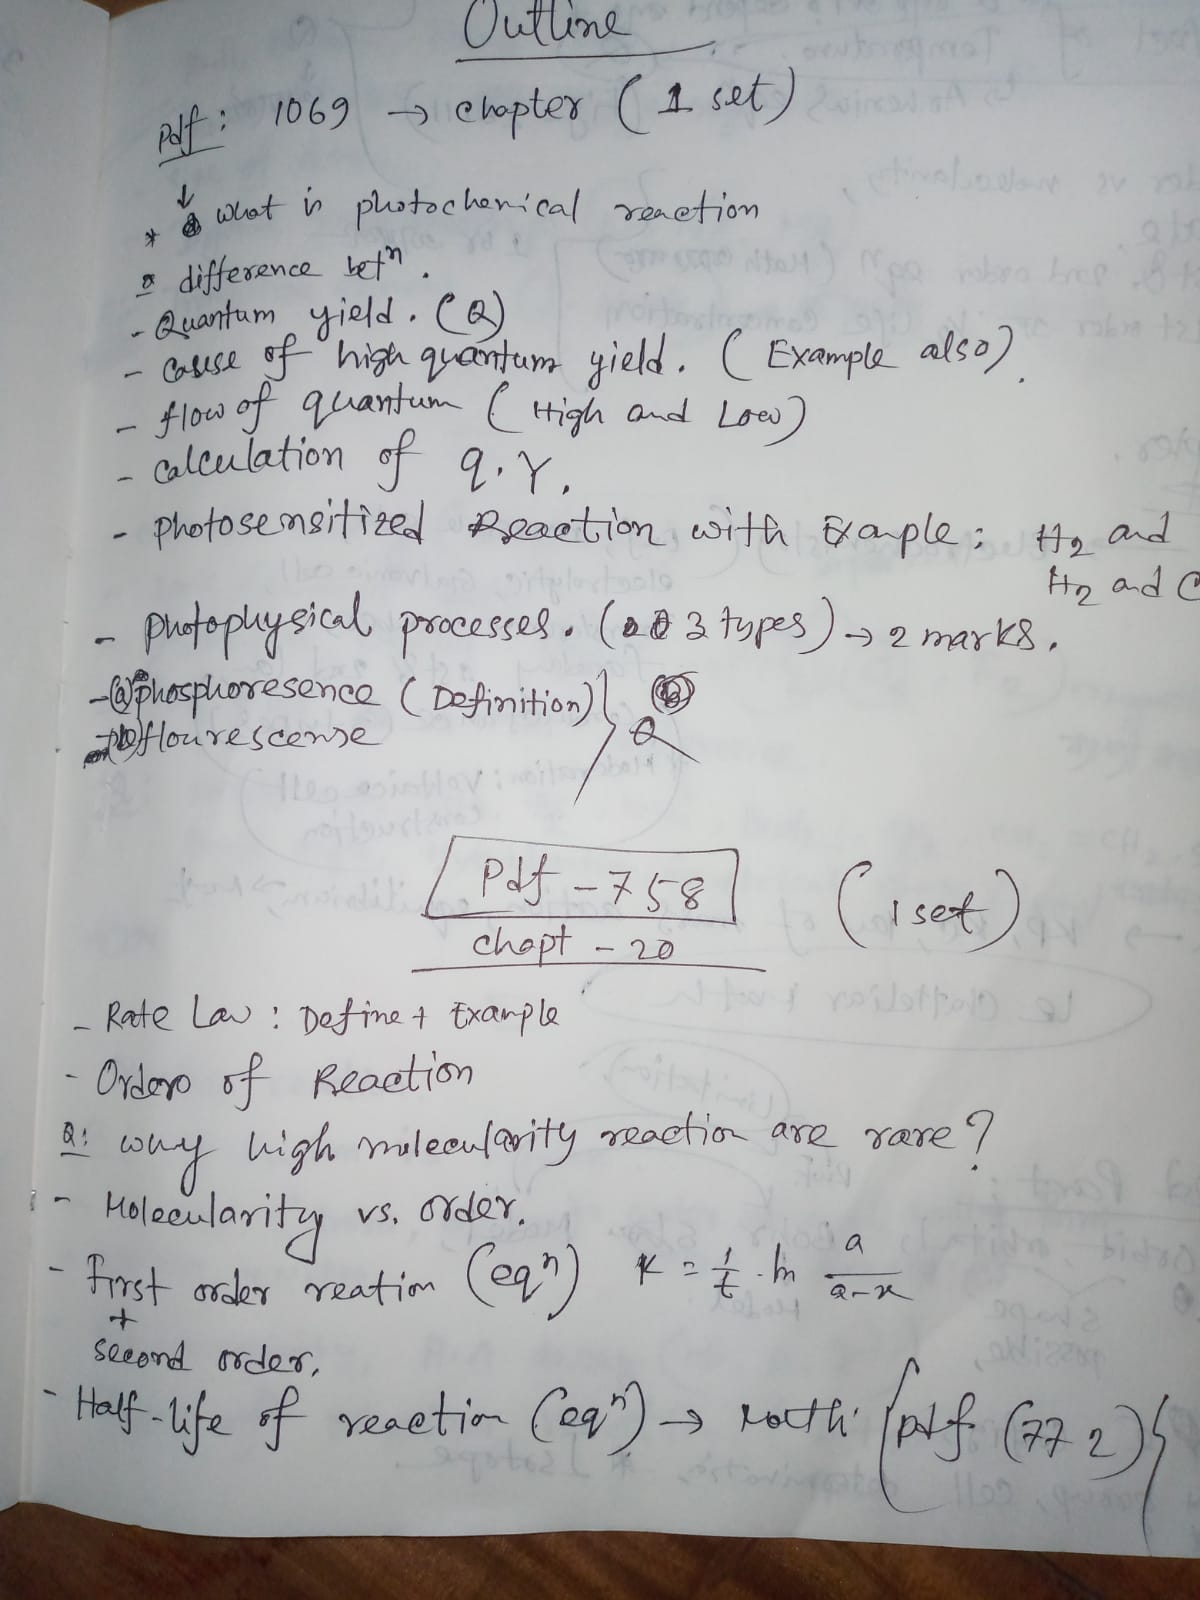 Outline
Pdf: 1069 → chapter (1 set)
↓
* what is photochemical reaction
difference betⁿ.
- Quantum yield. (Q)
- cause of high quantum yield. (Example also).
- flow of quantum (High and Low)
- calculation of q.Y.
- photosensitized Reaction with Example: H2 and
H2 and C
- photophysical processes. (3 types) → 2 marks.
- (a) phosphoresence (Definition)
(b) flourescense
Pdf - 758 (1 set)
chapt - 20
- Rate Law: Define + Example
- Orders of Reaction
Q: why high molecularity reaction are rare?
- Molecularity vs. order.
- First order reation (eqⁿ) K = 1/t . ln a/a-x
+
second order.
- Half-life of reaction (eqⁿ) → Math: {pdf (772)}